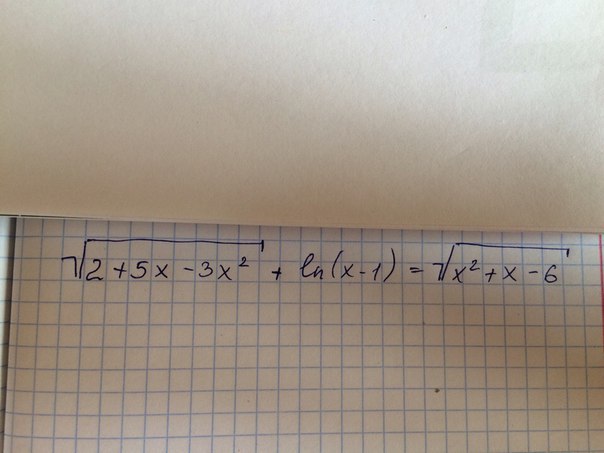 √(2 + 5x - 3x²) + ln(x-1) = √(x² + x - 6)